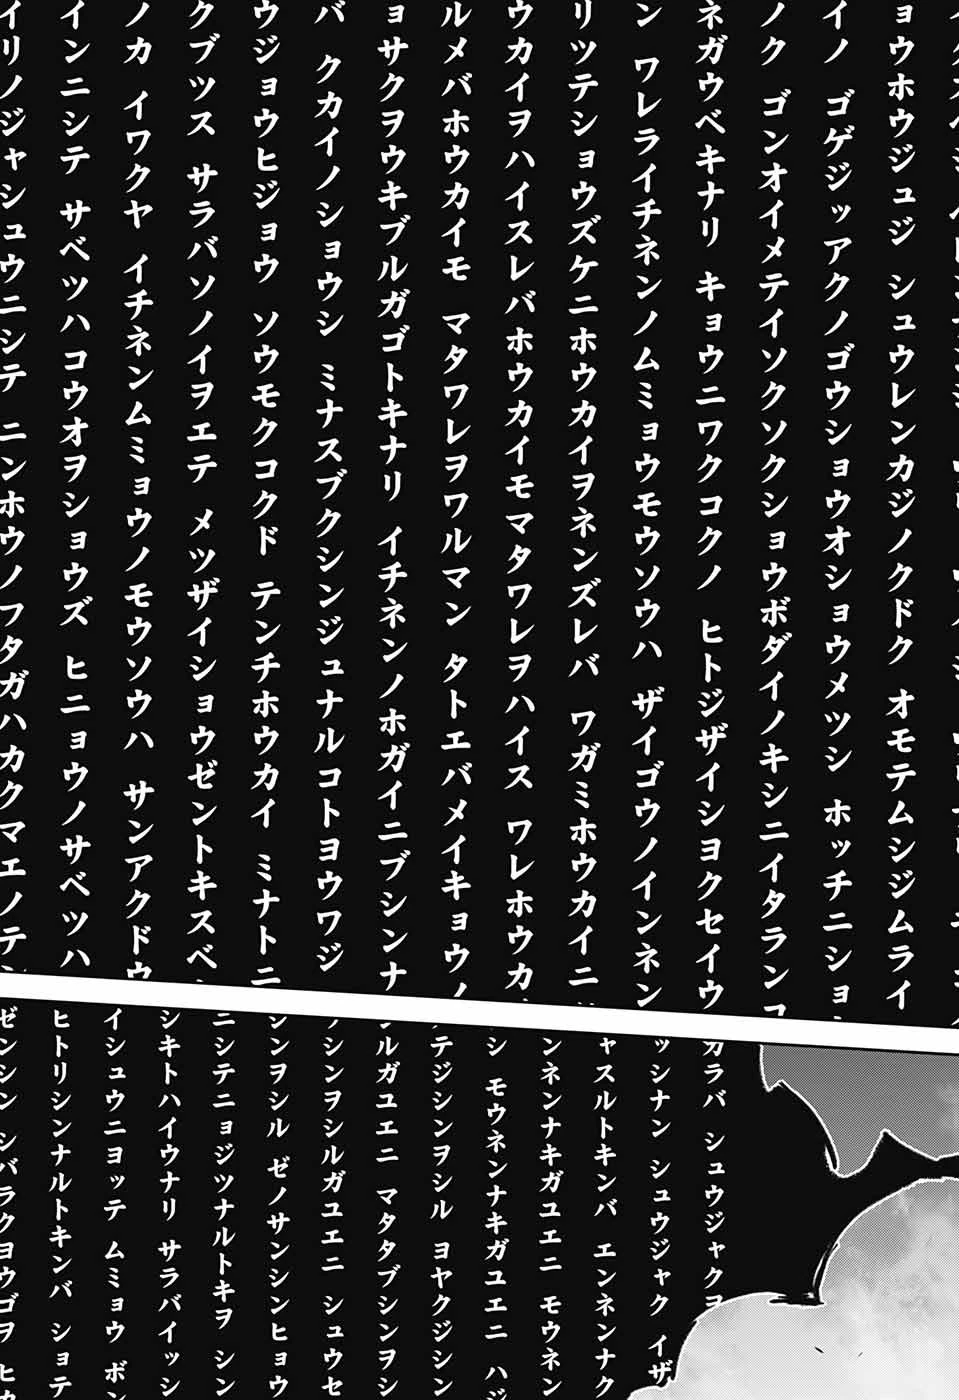 ョウホウジュジ シュウレンカジノクドク オモテムシジムライ
イノ ゴゲジッアクノゴウショウオショウメツシ ホッチニショ
ノク ゴンオイメテイソクソクショウボダイノキシニイタランコ
ネガウベキナリ キョウニワクコクノ ヒトジザイショクセイウ
ン ワレライチネンノムミョウモウソウハ ザイゴウノインネン
リツテショウズケニホウカイヲネンズレバ ワガミホウカイニ
ウカイヲハイスレバホウカイモマタワレヲハイス ワレホウカ
ルメバホウカイモ マタワレヲワルマン タトエバメイキョウノ
ョサクヲウキブルガゴトキナリ イチネンノホガイニブシンナ
バ クカイノショウシ ミナスブクシンジュナルコトヨウワジ
ウジョウヒジョウ ソウモクコクド テンチホウカイ ミナトニ
クブツス サラバソノイヲエテ メツザイショウゼントキスベ
ノカ イワクヤ イチネンムミョウノモウソウハ サンアクドウ
インニシテ サベツハコウオヲショウズ ヒニョウノサベツハ
イリノジャシュウニシテ ニンホウノフタガハカクマエノテン
カラバ シュウジャクヨ
ッシナン シュウジャク イザ
ャスルトキンバ エンネンナク
ンネンナキガユエニ モウネン
シ モウネンナキガユエニ ハジ
テジシンヲシル ヨヤクジシン
ルガユエニ マタタブシンヲシ
シンヲシルガユエニ シュウセ
ンヲシル ゼノサンシンヒョウ
ニシテニョジツナルトキヲ シン
シキトハイウナリ サラバイッシ
イシュウニヨッテ ムミョウ ボン
ヒトリシンナルトキンバ ショテ
ゼンシン シバラクヨウゴヲ ヒカ